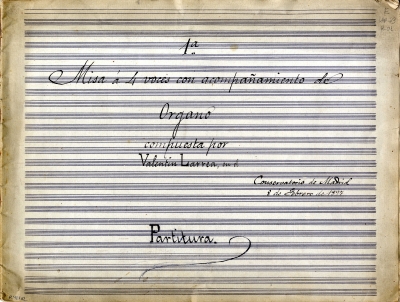 1ª
Misa á 4 voces con acompañamiento de
Organo
compuesta por
Valentin Larrea,
Conservatorio de Madrid
8 de Febrero de
Partitura.